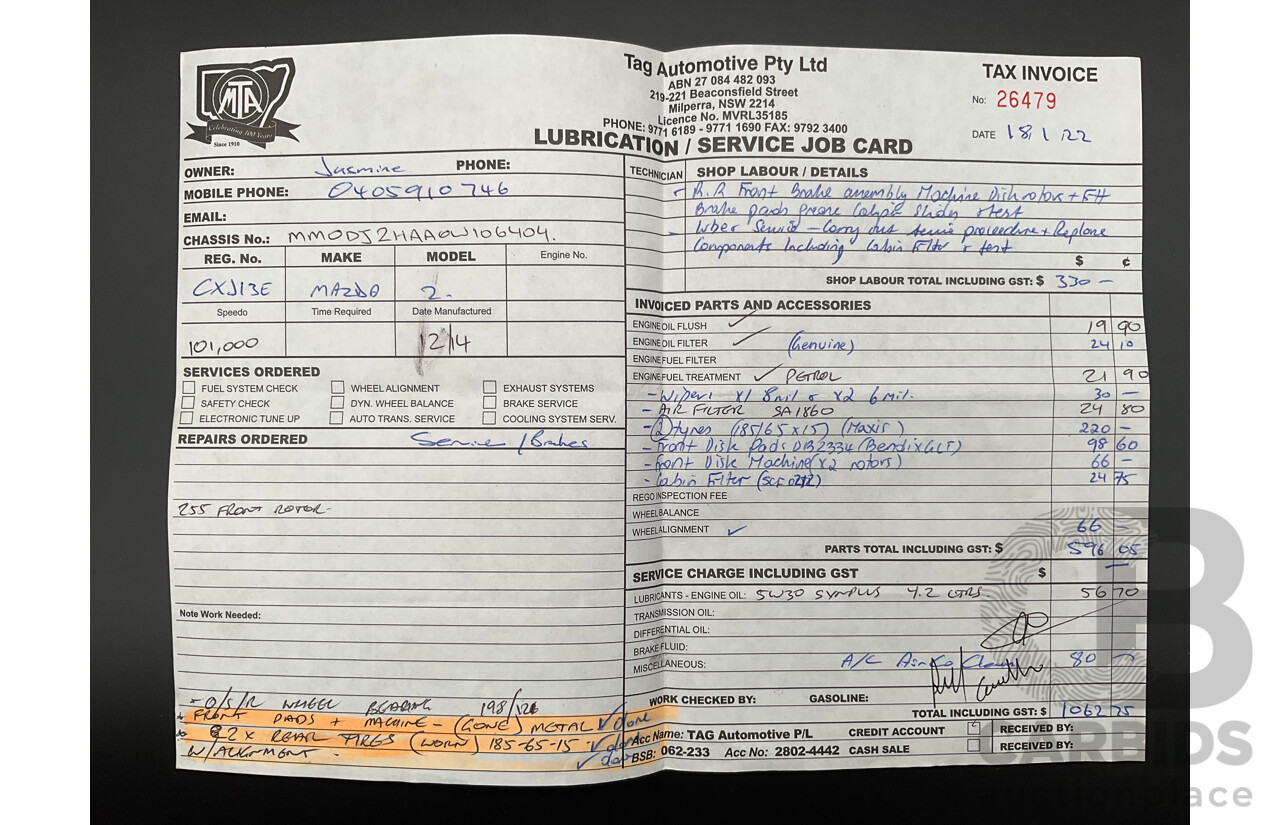 MTA
Celebrating 100 Years
Since 1910
Tag Automotive Pty Ltd
ABN 27 084 482 093
219-221 Beaconsfield Street
Milperra, NSW 2214
Licence No. MVRL35185
PHONE: 9771 6189 - 9771 1690 FAX: 9792 3400
LUBRICATION / SERVICE JOB CARD
TAX INVOICE
No: 26479
DATE 18/1/22
OWNER: Jasmine PHONE:
MOBILE PHONE: 0405910746
EMAIL:
CHASSIS No.: MM0DJ2HAA0W106404.
REG. No. MAKE MODEL Engine No.
CXJ13E MAZDA 2.
Speedo Time Required Date Manufactured
101,000 12/14
SERVICES ORDERED
FUEL SYSTEM CHECK WHEEL ALIGNMENT EXHAUST SYSTEMS
SAFETY CHECK DYN. WHEEL BALANCE BRAKE SERVICE
ELECTRONIC TUNE UP AUTO TRANS. SERVICE COOLING SYSTEM SERV.
REPAIRS ORDERED Service / Brakes
255 FRONT ROTOR-
Note Work Needed:
- O/S/R WHEEL BEARING 198/121
FRONT PADS + MACHINE - (GONE) METAL ✓ done
2x REAR TYRES (WORN) 185-65-15 - ✓ done
W/ALIGNMENT - ✓ done
TECHNICIAN SHOP LABOUR / DETAILS
- R.R Front Brake assembly Machine Disk rotors + Fit
Brake pads grease Caliper Slides + test
- Uber Service - Carry out service proceedure + Replace
Components Including Cabin Filter + test
$ ¢
SHOP LABOUR TOTAL INCLUDING GST: $ 330 -
INVOICED PARTS AND ACCESSORIES
ENGINE OIL FLUSH ✓ 19 90
ENGINE OIL FILTER ✓ (Genuine) 24 10
ENGINE FUEL FILTER
ENGINE FUEL TREATMENT ✓ PETROL 21 90
- Wipers x1 8mil x2 6mil. 30 -
- AIR FILTER SA1860 24 80
- (2) tyres (185/65x15) (Maxis) 220 -
- Front Disk Pads DB2334 (Bendix GCT) 98 60
- Front Disk Machine (x2 rotors) 66 -
- Cabin Filter 24 75
REGO INSPECTION FEE
WHEEL BALANCE
WHEEL ALIGNMENT ✓ 66 -
PARTS TOTAL INCLUDING GST: $ 596 05
SERVICE CHARGE INCLUDING GST $
LUBRICANTS - ENGINE OIL: 5W30 SYNPLUS 4.2 LTRS. 56 70
TRANSMISSION OIL:
DIFFERENTIAL OIL:
BRAKE FLUID:
MISCELLANEOUS: A/C 80 -
WORK CHECKED BY: GASOLINE:
TOTAL INCLUDING GST: $ 1062 75
Acc Name: TAG Automotive P/L CREDIT ACCOUNT RECEIVED BY:
BSB: 062-233 Acc No: 2802-4442 CASH SALE RECEIVED BY:
CARBIDS
auctionplace